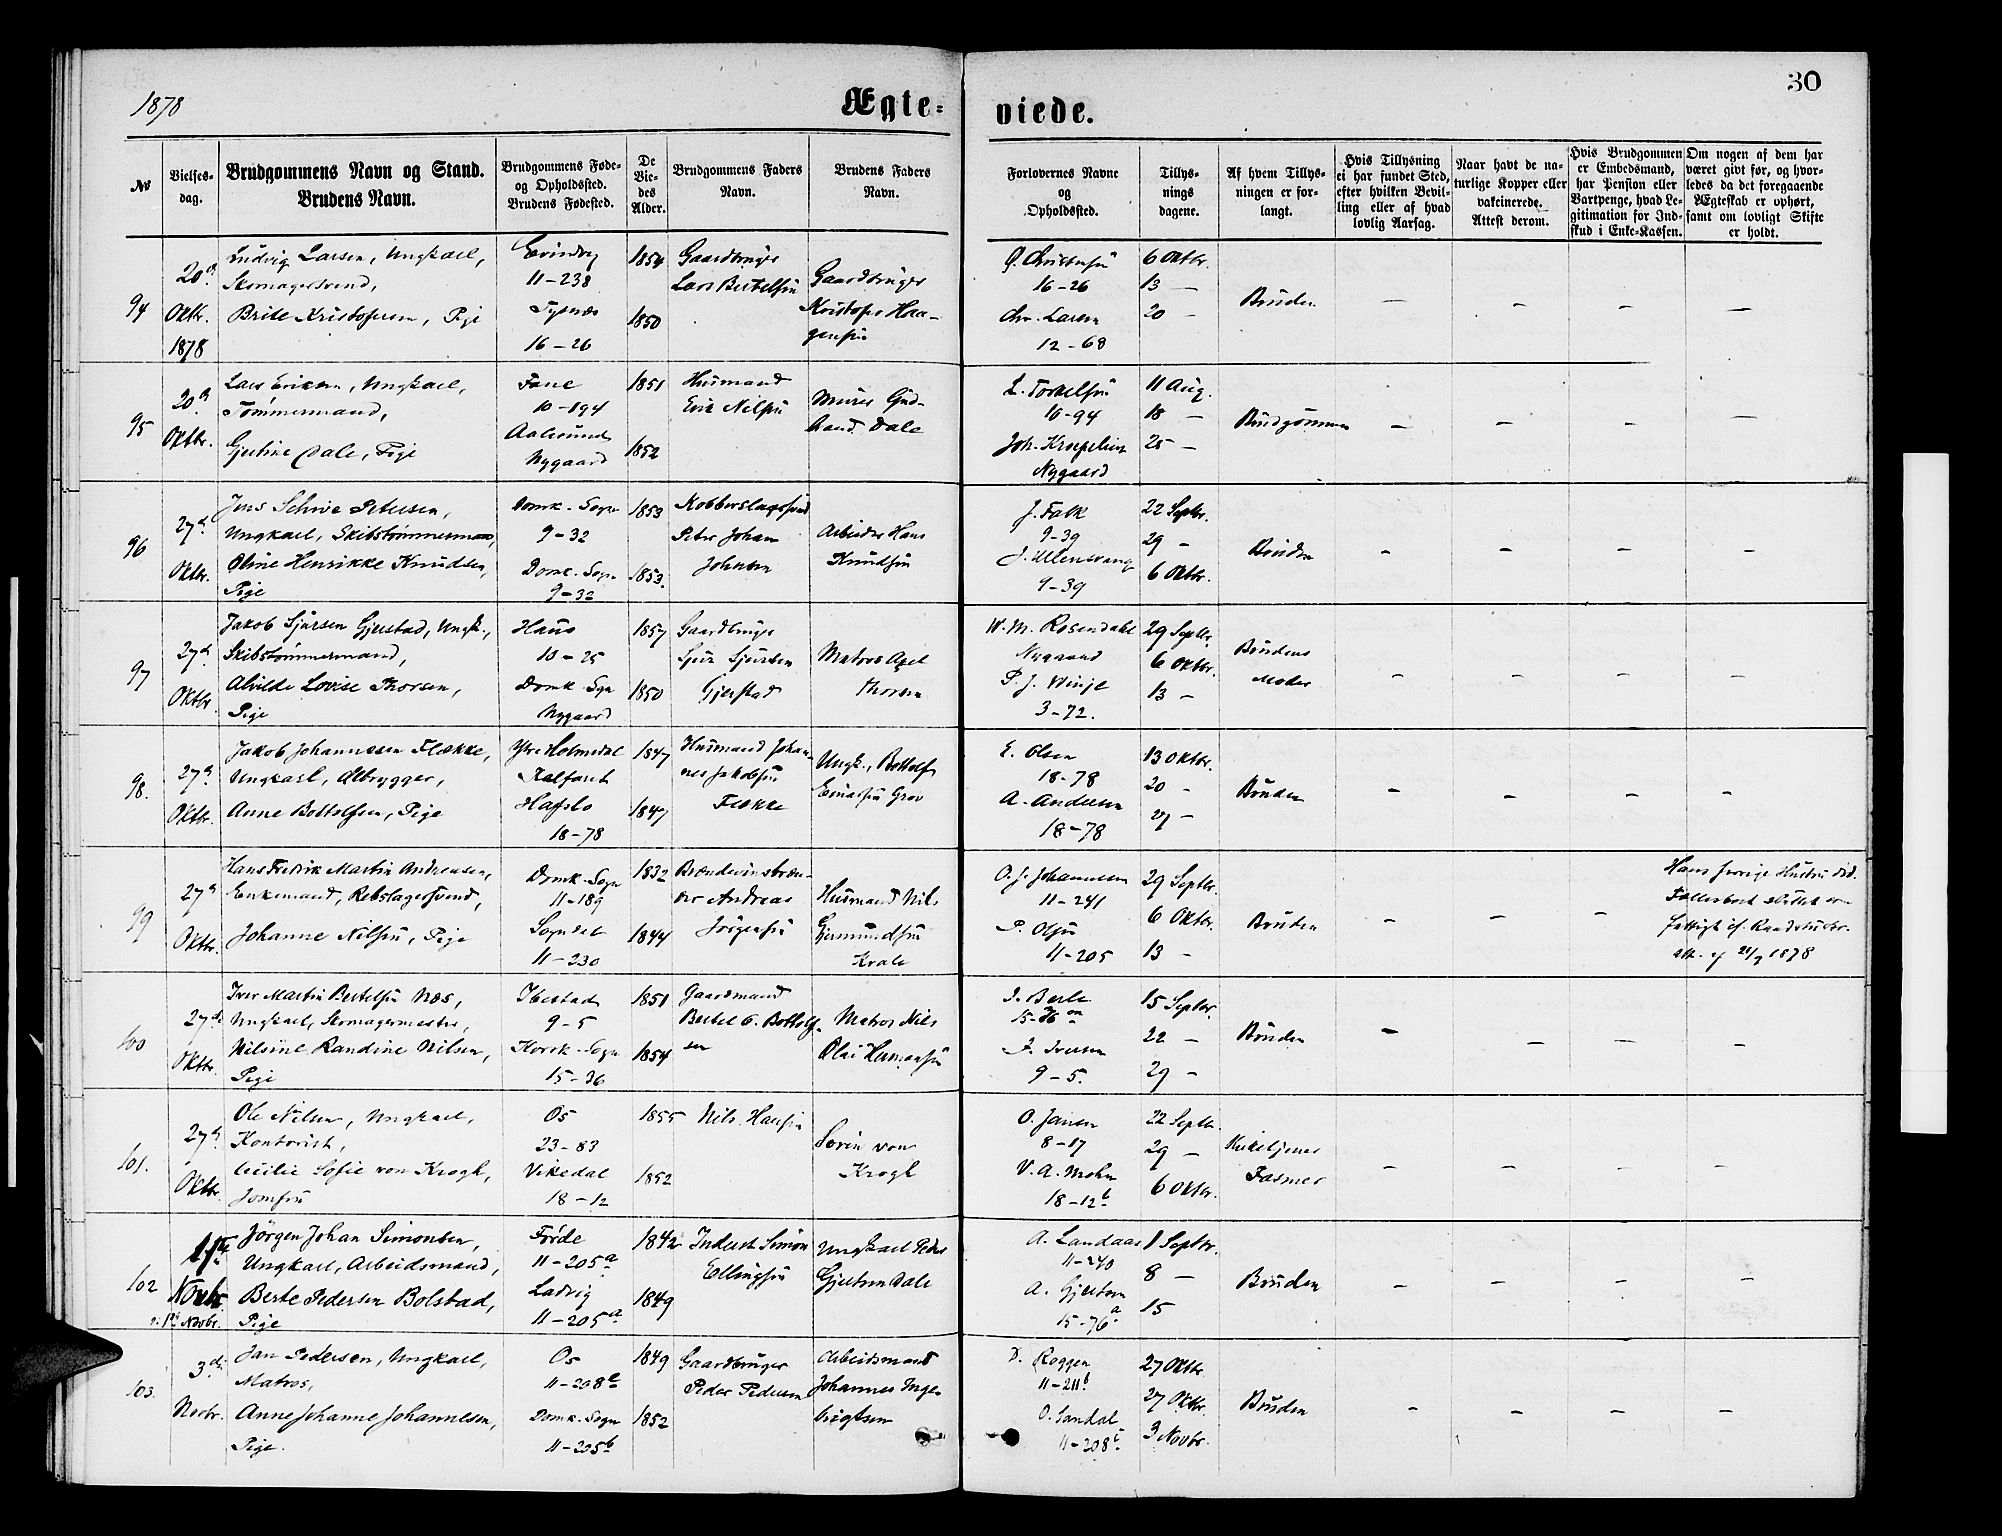 1878
Ægte-
viede.
30
№
Vielses-
dag.
Brudgommens Navn og Stand.
Brudens Navn.
Brudgommens Føde-
og Opholdssted.
Brudens Fødested.
De
Vie-
des
Alder.
Brudgommens Faders
Navn.
Brudens Faders
Navn.
Forlovernes Navne
og
Opholdssted.
Tillys-
nings
dagene.
Af hvem Tillys-
ningen er for-
langt.
Hvis Tillysning
ei har fundet Sted,
efter hvilken Bevil-
ling eller af hvad
lovlig Aarsag.
Naar havt de na-
turlige Kopper eller
vakcinerede.
Attest derom.
Hvis Brudgommen
er Embedsmand,
har Pension eller
Vartpenge, hvad Le-
gitimation for Ind-
skud i Enke-Kassen.
Om nogen af dem har
været givt før, og hvor-
ledes da det foregaaende
Ægteskab er ophørt,
samt om lovligt Skifte
er holdt.
94
20de
Oktbr.
1878
Ludvig Larsen, Ungkarl,
Skomagersvend,
Brite Kristofersen, Pige
Evindvig
11-238
Tysnæs
16-26
1854
1850
Gaardbruger
Lars Bertelsen
Gaardbruger
Kristofer Haa-
gensen
16-26
Chr. Larsen
12-68
6 Oktbr.
13 -
20 -
Bruden
95
20de
Oktbr.
Lars Eriksen, Ungkarl,
Tømmermand,
Gjertine Dale, Pige
Fane
10-194
Aalesund
Nygaard
1851
1852
Husmand
Erik Nilsen
Murer Gud-
brand Dale
L. Torkelsen
10-94
Joh. Kroepelien
Nygaard
11 Aug.
18 -
25 -
Brudgommen
96
27de
Oktbr.
Jens Schive Petersen,
Ungkarl, Skibstømmermand,
Oline Henrikke Knudsen,
Pige
Domk. Sogn
9-32
Domk. Sogn
9-32
1853
1853.
Kobberslagersvend
Peter Johan
Johnsen
Arbeider Hans
Knudsen
J. Falk
9-39
J. Ullensvang
9-39
22 Septbr.
29 -
6 Oktbr.
Bruden
97
27de
Oktbr.
Jakob Sjursen Gjerstad, Ungk.,
Skibstømmermand,
Alvilde Lovise Thorsen,
Pige
Haus
10-25
Domk. Sogn
Nygaard
1857
1850
Gaardbruger
Sjur Sjursen
Gjerstad
Matros Axel
Thorsen
W. M. Rosendahl
Nygaard
P. J. Winje
3-72.
29 Septbr.
6 Oktbr.
13 -
Brudens
Moder
98.
27de
Oktbr.
Jakob Johannessen Flække,
Ungkarl, Ølbrygger,
Anne Bottolfsen, Pige
Ytre Holmedal
Kalfaret
Hafslo
18-78
1847
1847
Husmand Johan-
nes Jakobsen
Flække
Ungk., Bottolf
Einarsen Grov
E. Olsen
18-78
A. Andersen
18-78
13 Oktbr.
20 -
27 -
Bruden
99
27de
Oktbr.
Hans Fredrik Martin Andreasen,
Enkemand, Rebslagersvend,
Johanne Nilsen, Pige
Domk. Sogn
11-189
Sogndal
11-230
1832
1844
Brændevinsbræn-
der Andreas
Jörgensen
Husmand Nils
Gjermundsen
Kvale
O. J. Johannesen
11-241
P. Olsen
11-205
29 Septbr.
6 Oktbr.
13 -
Bruden
Hans forrige Hustru død.
Fællesboet sluttet som
fattigt cf. Raadstuskr.
att. af 21/9 1878
100
27de
Oktbr.
Iver Martin Bertelsen Næs,
Ungkarl, Skomagermester,
Nilsine Randine Nilsen,
Pige
Ibestad
9-5
Korsk. Sogn
15-36
1851
1854
Gaardmand
Bertel O. Bottolf-
sen
Matros Nils
Olai Hermansen
J. Berle
J. Iversen
9-5.
15 Septbr.
22 -
29 -
Bruden
101.
27de
Oktbr.
Ole Nilsen, Ungkarl,
Kontorist,
Cecilie Sofie von Krogh,
Jomfru
Os
23-83
Vikedal
18-12
1855
1852
Nils Hansen
Sørin von
Krogh
O. Jansen
8-17
V. A. Mohn
18-12b
22 Septbr.
29 -
6 Oktbr.
Kirketjener
Fasmer
102
1ste
Novbr.
2: 1ste Novbr.
Jörgen Johan Simonsen,
Ungkarl, Arbeidsmand,
Berte Pedersen Bolstad,
Pige
Førde
11-205a
Ladvig
11-205a
1842
1849
Inderst Simon
Ellingsen
Ungkarl Peder
Gjertsen Dale
A. Landaas
11-240
A. Gjertsen
15-76a
1 Septbr.
8 -
15
Bruden
103
3die
Novbr.
Jan Pedersen, Ungkarl,
Matros,
Anne Johanne Johannesen,
Pige.
Os
11-208c
Domk. Sogn
11-205b
1849
1852
Gaardbruger
Peder Pedersen
Arbeidsmand
Johannes Inge-
brigtsen
D. Roggen
11-211b
O. Sandal
11-208c
27 Oktbr.
27 Oktbr.
3 Novbr.
Bruden